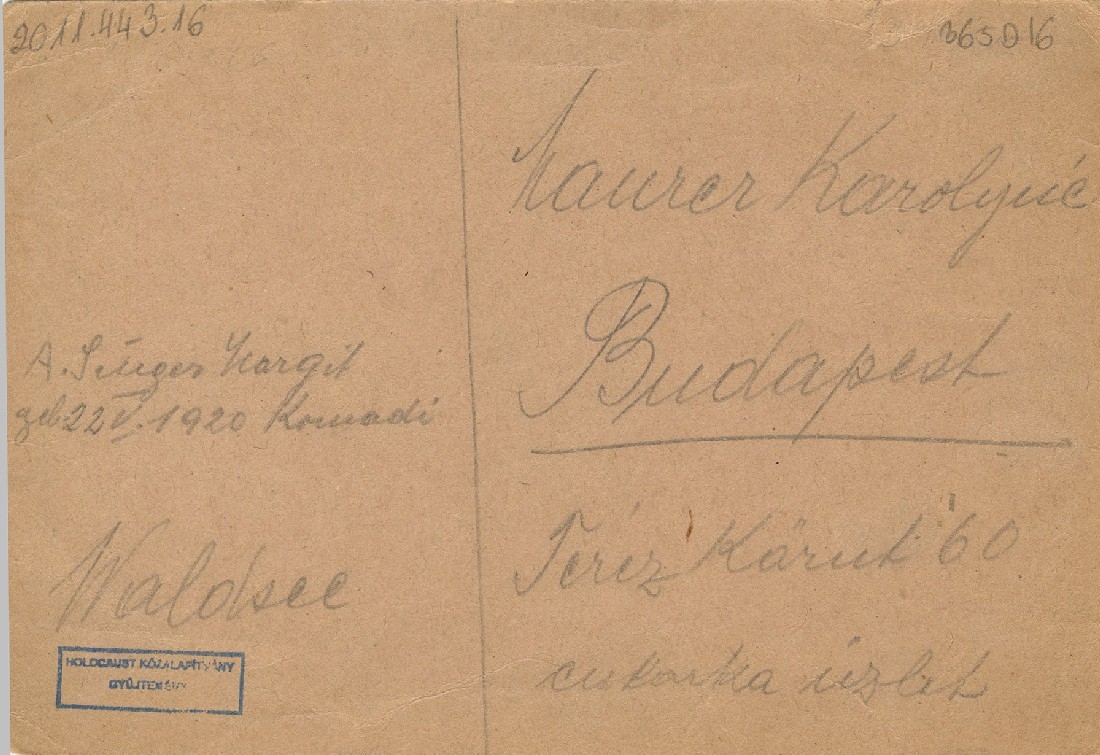 2011.443.16
365D16
Maurer Karolyné
Budapest
Teréz Körut 60
cukorka üzlet
A. Singer Margit
geb 22 V. 1920 Komadi
Waldsee
HOLOCAUST KÖZALAPÍTVÁNY
GYŰJTEMÉNY